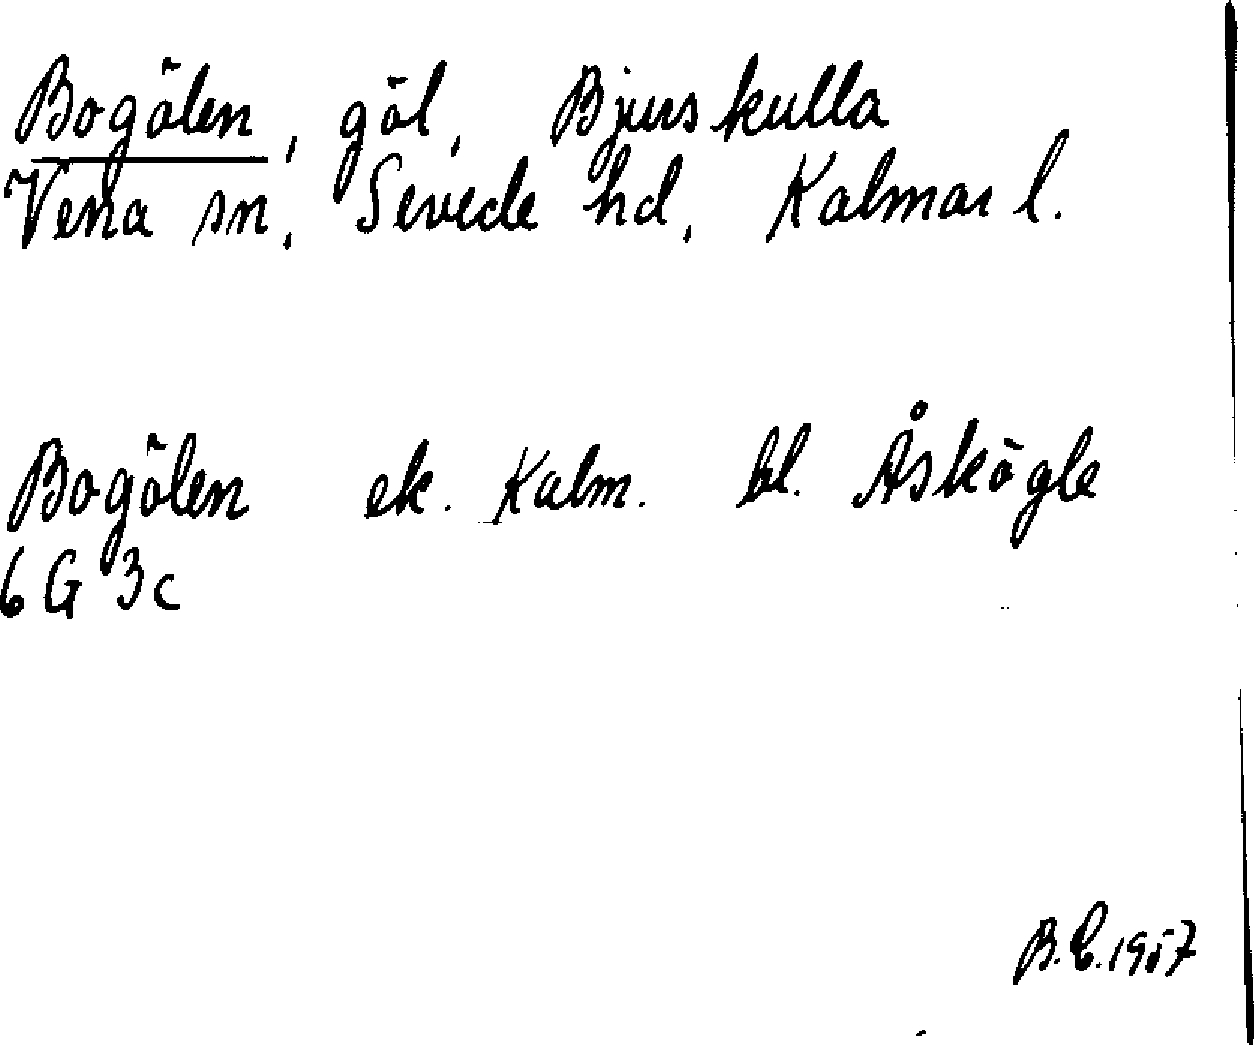 Bogölen, göl, Bjurskulla
Vena sn, Sevede hd, Kalmar l.
Bogölen ek. Kalm. bl. Åskögle
6G 3c
B.E. 1957